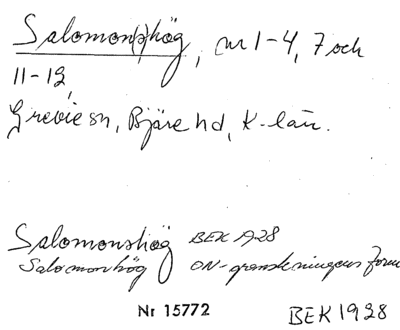 Salomon(s)hög, nr 1-4, 7 och
11-12,
Grevie sn, Bjäre hd, K-län.
Salomonshög BEK 1928
Salomonhög ON-granskningens form
Nr 15772
BEK 1928